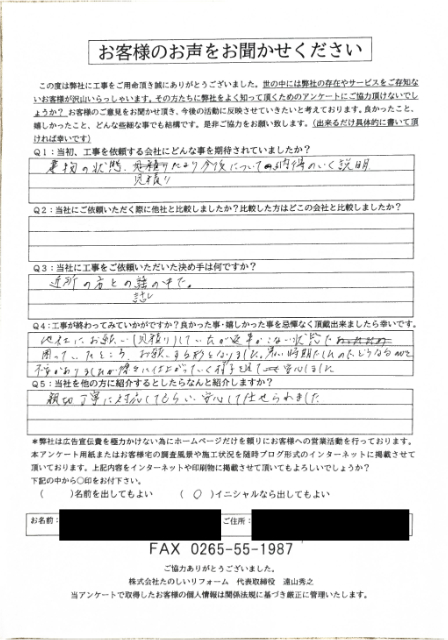 お客様のお声をお聞かせください
この度は弊社に工事をご用命頂き誠にありがとうございました。世の中には弊社の存在やサービスをご存知
ないお客様が沢山いらっしゃいます。その方たちに弊社をよく知って頂くためのアンケートにご協力頂けないでし
ょうか？お客様のご意見をお聞かせ頂き、今後の活動に反映させていきたいと考えております。良かったこと、
嬉しかったこと、どんな些細な事でも結構です。是非ご協力をお願い致します。（出来るだけ具体的に書いて頂
ければ幸いです）
Q1：当初、工事を依頼する会社にどんな事を期待されていましたか？
建物の状態、見積りにより今後についての納得のいく説明
見積り
Q2：当社にご依頼いただく際に他社と比較しましたか？比較した方はどこの会社と比較しましたか？
Q3：当社に工事をご依頼いただいた決め手は何ですか？
近所の方との話の中で。
話し
Q4：工事が終わってみていかがですか？良かった事・嬉しかった事を忌憚なく頂戴出来ましたら幸いです。
他社にお願い(見積り)していたが返事がこない状況で
困っていたところ、お願いする形となりました。寒い時期でしたのでどうなるかと
不安がありましたが順々に仕上がっていく様子を見て安心しました
Q5：当社を他の方に紹介するとしたらなんと紹介しますか？
親切丁寧に対応してもらい安心して任せられました
＊弊社は広告宣伝費を極力かけない為にホームページだけを頼りにお客様への営業活動を行っております。
本アンケート用紙またはお客様宅の調査風景や施工状況を随時ブログ形式のインターネットに掲載させて
頂いております。上記内容をインターネットや印刷物に掲載させて頂いてもよろしいでしょうか？
下記の中から○印をお付下さい。
（　）名前を出してもよい　（○）イニシャルなら出してもよい
お名前：　ご住所：
FAX 0265-55-1987
ご協力ありがとうございました。
株式会社たのしいリフォーム　代表取締役　遠山秀之
当アンケートで取得したお客様の個人情報は関係法規に基づき厳正に管理いたします。